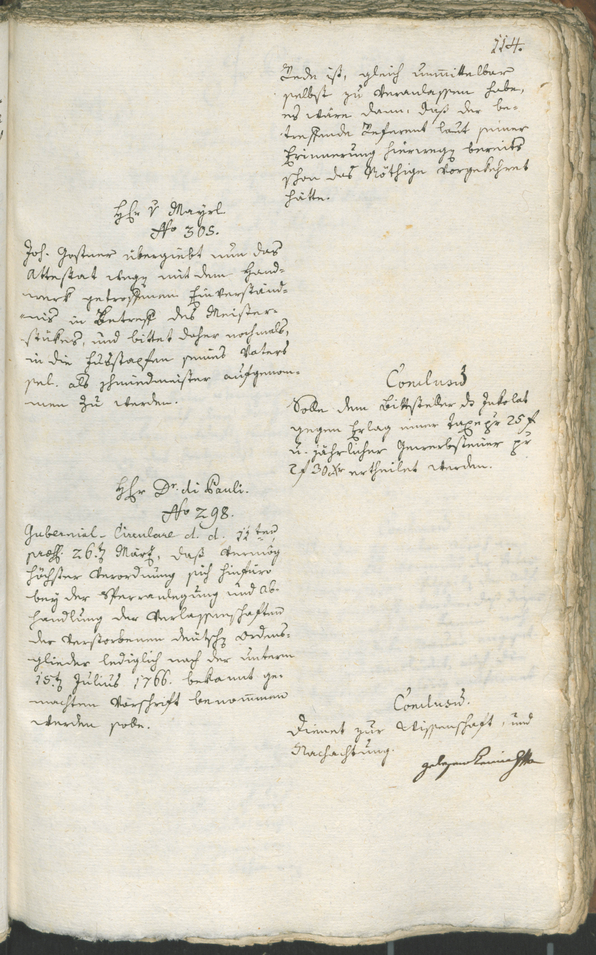 114.
Rede ist, gleich unmittelbar
selbst zu veranlassen habe,
es wäre dann, daß der be-
treffende Referent laut seiner
Erinnerung hierwegen bereits
schon das Nöthige vorgekehret
hätte.
Hr v Mayrl
No 305.
Joh. Gostner übergiebt nun das
Attestat wegen mit dem Hand-
werk getroffenem Einverständ-
nis in Betreff des Meister-
stükes, und bittet daher nochmals,
in die Fusstapfen seines Vaters
sel. als Schmiedmeister aufgenom-
men zu werden.
Conclusum
Solle dem Bittsteller das Inkolat
gegen Erlag einer Taxe pr 25 f
u. jährlicher Gewerbsteuer pr
2 f 30 xr ertheilet werden.
Hr Dr. di Pauli.
No 298.
Gubernial-Circulare d. d. 11ten
praes. 26.ten März, daß vermög
höchster Verordnung sich hinfüro
bey der Sperranlegung und Ab-
handlung der Verlassenschaften
der verstorbenen deutschen Ordens-
glieder lediglich nach der unterm
15.ten Julius 1766. bekannt ge-
machten Vorschrift benommen
werden solle.
Conclusum.
Dienet zur Wissenschaft, und
Nachachtung.